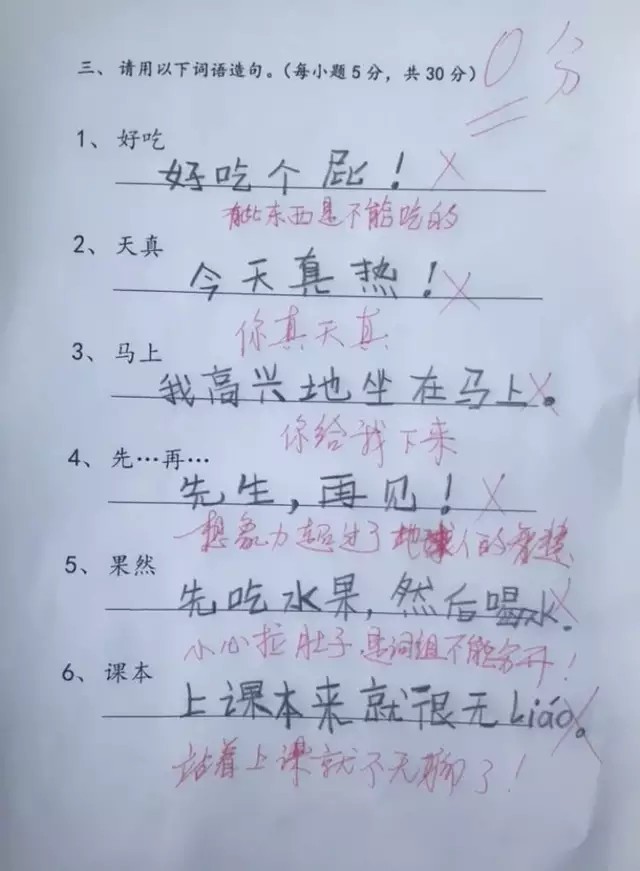 三、请用以下词语造句。(每小题5分，共30分)
0分
1、好吃
好吃个屁！
有些东西是不能吃的
2、天真
今天真热！
你真天真
3、马上
我高兴地坐在马上。
你给我下来
4、先…再…
先生，再见！
想象力超过了地球人的智慧
5、果然
先吃水果，然后喝水.
小心拉肚子 是词组不能分开！
6、课本
上课本来就很无Liáo。
站着上课就不无聊了！